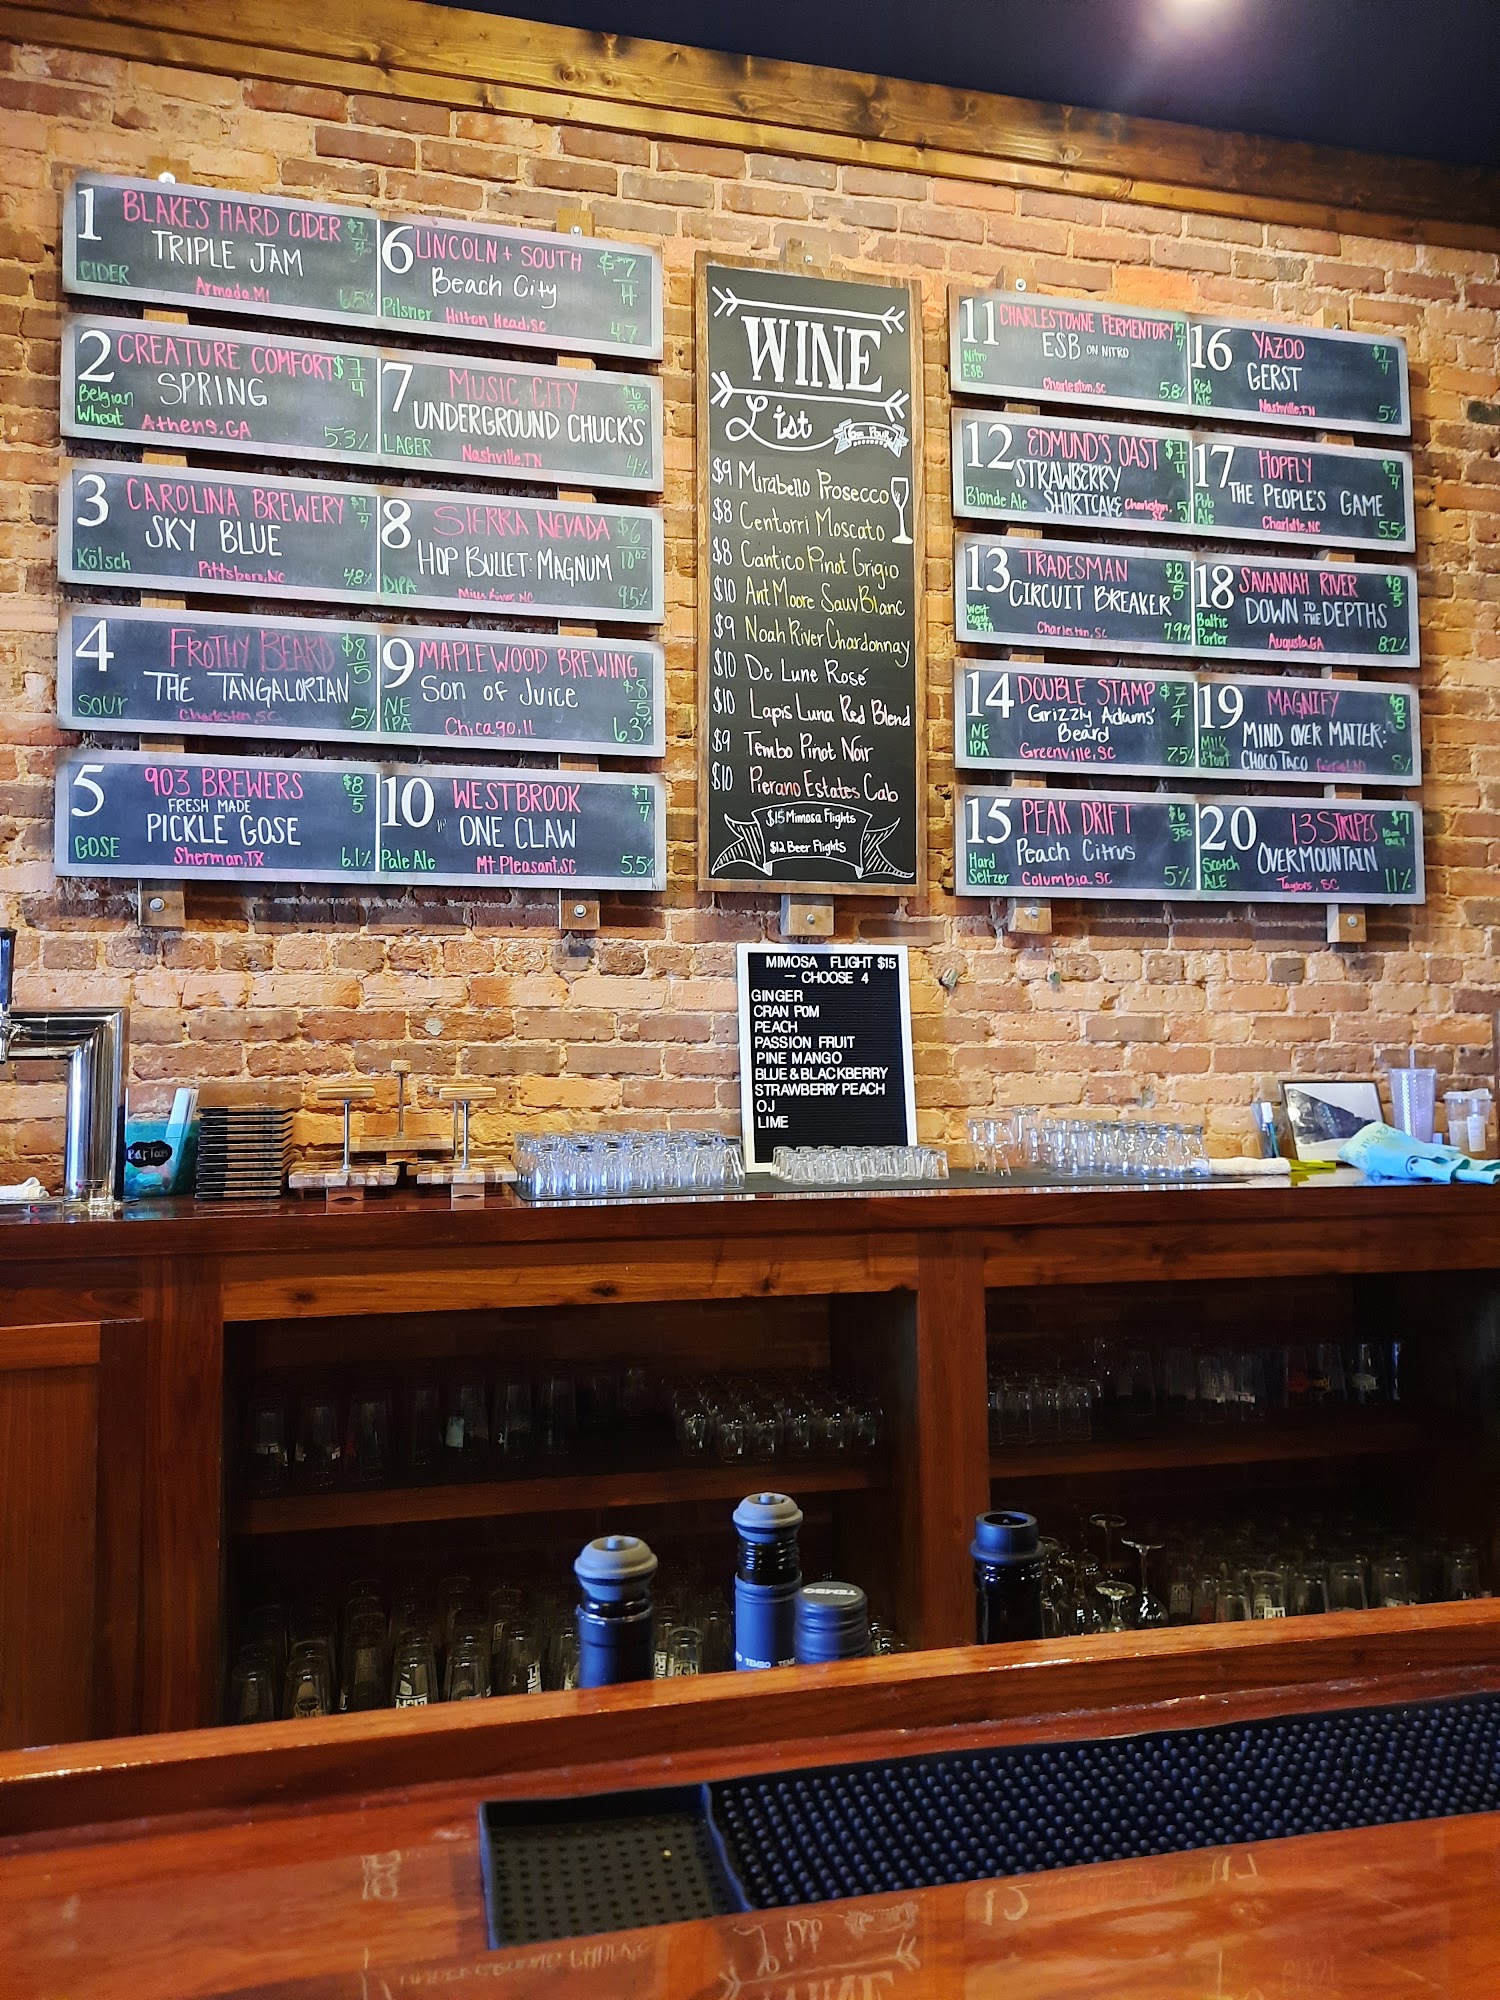 1 BLAKE'S HARD CIDER $7
TRIPLE JAM
CIDER Armada, MI 6.5%
2 CREATURE COMFORT $7/4
SPRING
Belgian
Wheat Athens, GA 5.3%
3 CAROLINA BREWERY $7/4
SKY BLUE
Kölsch Pittsboro, NC 4.8%
4 FROTHY BEARD $8/5
THE TANGALORIAN
SOUR Charleston, SC 5%
5 903 BREWERS $8/5
FRESH MADE
PICKLE GOSE
GOSE Sherman, TX 6.1%
6 LINCOLN + SOUTH $7/4
Beach City
Pilsner Hilton Head, SC 4.7
7 MUSIC CITY $6/3.50
UNDERGROUND CHUCK'S
LAGER Nashville, TN 4%
8 SIERRA NEVADA $6/10oz
HOP BULLET: MAGNUM
DIPA Mills River, NC 9.5%
9 MAPLEWOOD BREWING $8/5
Son of Juice
NE
IPA Chicago, IL 6.3%
10 WESTBROOK $7/4
ONE CLAW
Pale Ale Mt. Pleasant, SC 5.5%
WINE
List
$9 Mirabello Prosecco
$8 Centorri Moscato
$8 Cantico Pinot Grigio
$10 Ant Moore Sauv Blanc
$9 Noah River Chardonnay
$10 De Lune Rosé
$10 Lapis Luna Red Blend
$9 Tembo Pinot Noir
$10 Pierano Estates Cab
$15 Mimosa Flights
$12 Beer Flights
11 CHARLESTOWNE FERMENTORY $7/4
ESB ON NITRO
Nitro
ESB Charleston, SC 5.8%
12 EDMUND'S OAST $7/4
STRAWBERRY
SHORTCAKE
Blonde Ale Charleston, SC 5%
13 TRADESMAN $8/5
CIRCUIT BREAKER
West
Coast
IPA Charleston, SC 7.9%
14 DOUBLE STAMP $7/4
Grizzly Adams'
Beard
NE
IPA Greenville, SC 7.5%
15 PEAK DRIFT $6/3.50
Peach Citrus
Hard
Seltzer Columbia, SC 5%
16 YAZOO $7/4
GERST
Red
Ale Nashville, TN 5%
17 HOPFLY $7/4
THE PEOPLE'S GAME
Pub
Ale Charlotte, NC 5.5%
18 SAVANNAH RIVER $8/5
DOWN TO THE DEPTHS
Baltic
Porter Augusta, GA 8.2%
19 MAGNIFY $8/5
MIND OVER MATTER:
CHOCO TACO
Milk
Stout 8%
20 13 STRIPES $7
OVERMOUNTAIN
Scotch
ALE Taylors, SC 11%
MIMOSA FLIGHT $15
- CHOOSE 4
GINGER
CRAN POM
PEACH
PASSION FRUIT
PINE MANGO
BLUE & BLACKBERRY
STRAWBERRY PEACH
OJ
LIME
Bar Tools
TEMBO
TEMBO